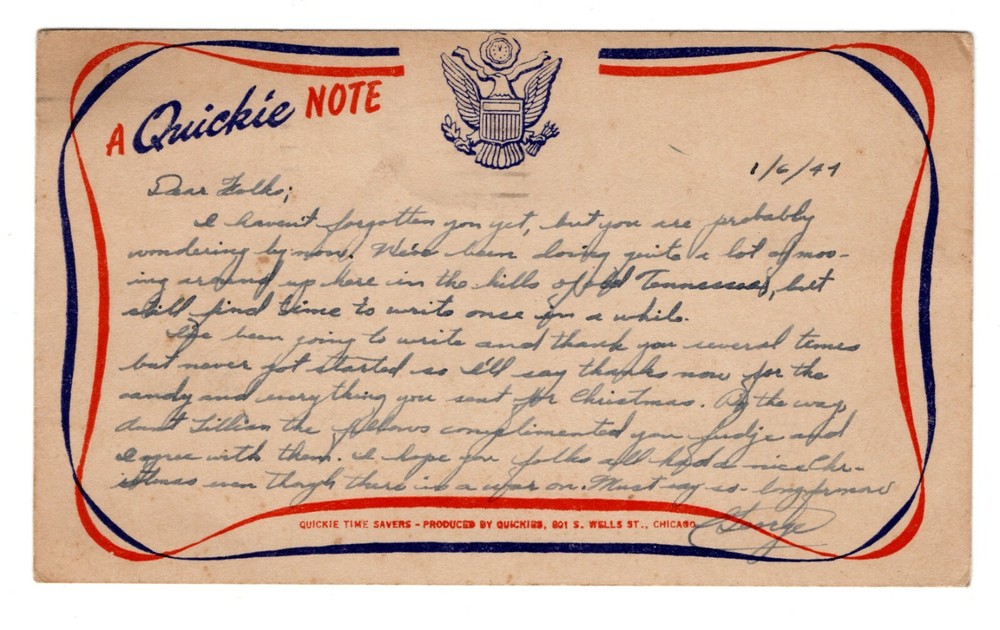 A Quickie NOTE
1/6/44
Dear Folks;
I haven't forgotten you yet, but you are probably
wondering by now. We've been doing quite a lot of mov-
ing around up here in the hills of old Tennessee, but
still find time to write once in a while.
I've been going to write and thank you several times
but never got started so I'll say thanks now for the
candy and everything you sent for Christmas. By the way,
Aunt Lillian the fellows complimented your fudge and
I agree with them. I hope you folks all had a nice Chr-
istmas even though there is a war on. Must say so-long for now
George
QUICKIE TIME SAVERS - PRODUCED BY QUICKIES, 801 S. WELLS ST., CHICAGO